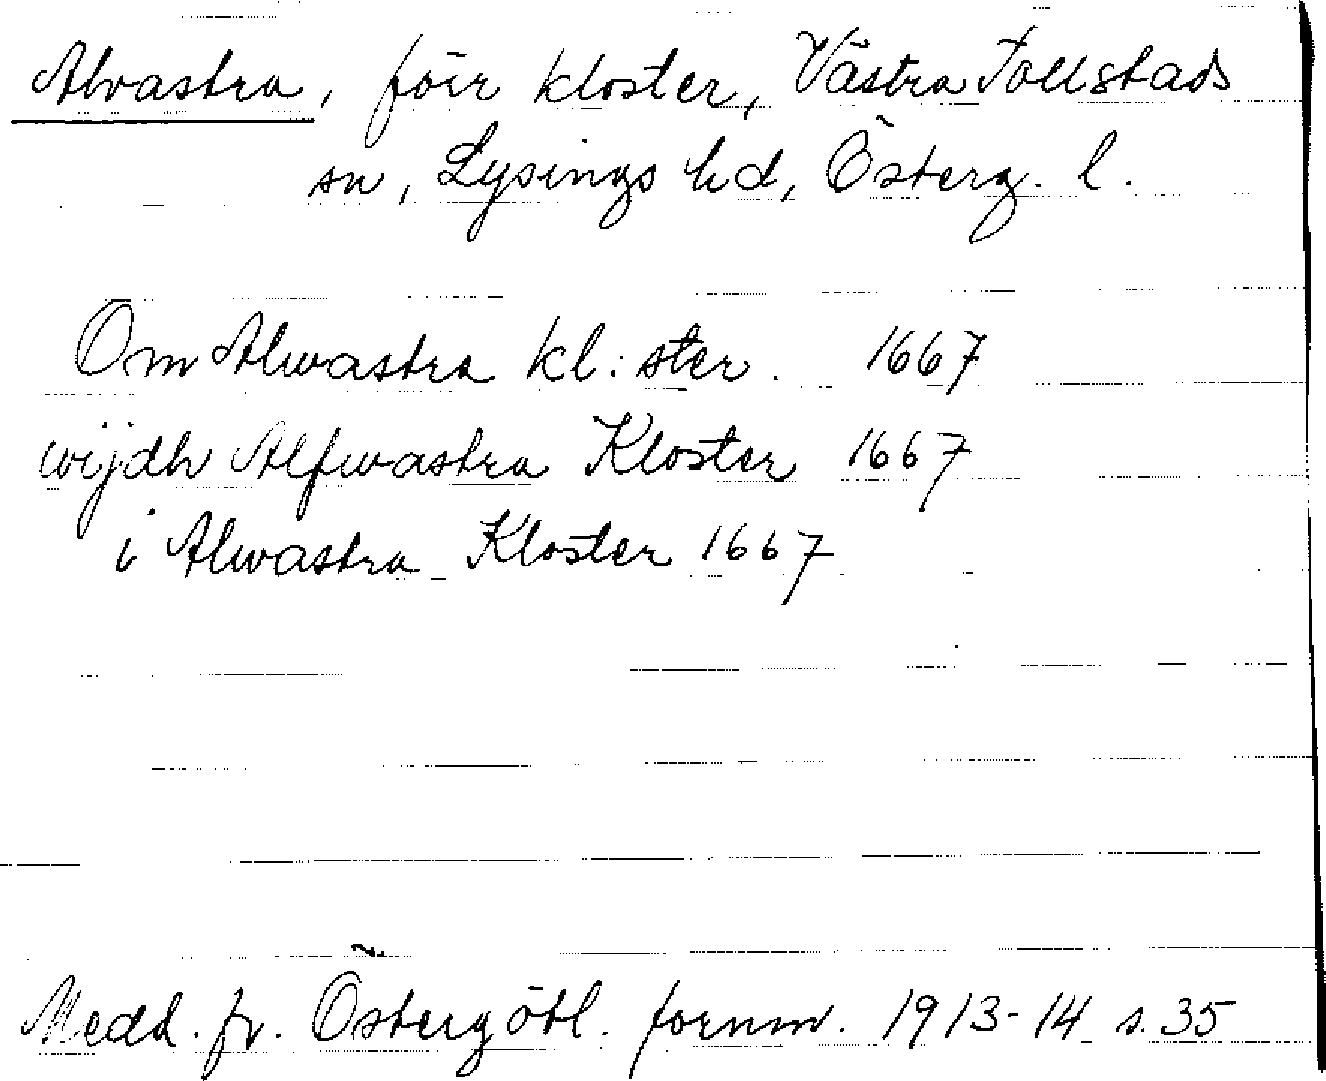 Alvastra, förr kloster, Västra Tollstads
sn, Lysings hd, Österg. l.
Om Alwastra kl:ster. 1667
wijdh Alfwastra Kloster 1667
i Alwastra Kloster 1667
Medd. fr. Östergötl. fornm. 1913-14 s. 35